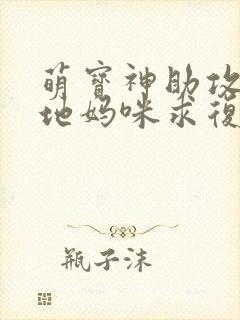 萌寶神助攻
地媽咪求復
瓶子沫